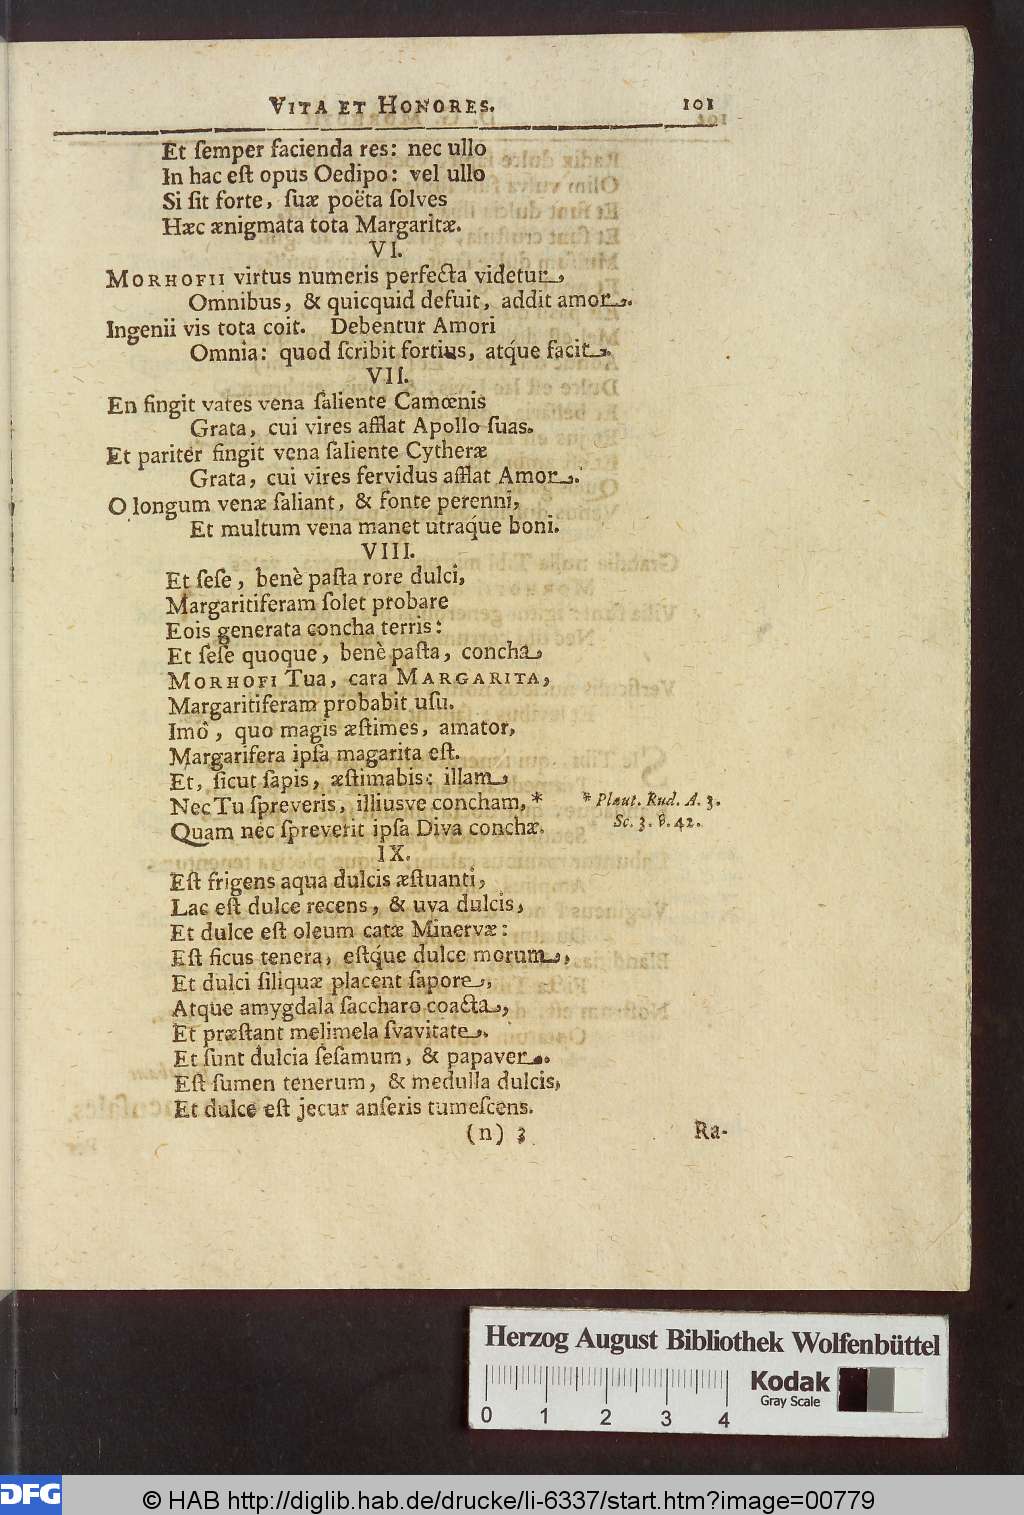 VITA ET HONORES. 101
Et ſemper facienda res: nec ullo
In hac eſt opus Oedipo: vel ullo
Si ſit forte, ſuæ poëta ſolves
Hæc ænigmata tota Margaritæ.
VI.
MORHOFII virtus numeris perfecta videtur,
Omnibus, & quicquid defuit, addit amor.
Ingenii vis tota coit. Debentur Amori
Omnia: quod ſcribit fortius, atq́ue facit.
VII.
En fingit vates vena ſaliente Camœnis
Grata, cui vires afflat Apollo ſuas.
Et pariter fingit vena ſaliente Cytheræ
Grata, cui vires fervidus afflat Amor.
O longum venæ ſaliant, & fonte perenni,
Et multum vena manet utraq́ue boni.
VIII.
Et ſeſe, benè paſta rore dulci,
Margaritiferam ſolet probare
Eois generata concha terris:
Et ſeſe quoque, benè paſta, concha,
MORHOFI Tua, cara MARGARITA,
Margaritiferam probabit uſu.
Imò, quo magis æſtimes, amator,
Margarifera ipſa magarita eſt.
Et, ſicut ſapis, æſtimabis: illam,
Nec Tu ſpreveris, illiusve concham, * * Plaut. Rud. A. 3.
Sc. 3. v. 42.
Quam nec ſpreverit ipſa Diva conchæ.
IX.
Eſt frigens aqua dulcis æſtuanti,
Lac eſt dulce recens, & uva dulcis,
Et dulce eſt oleum catæ Minervæ:
Eſt ficus tenera, eſtq́ue dulce morum,
Et dulci ſiliquæ placent ſapore,
Atque amygdala ſaccharo coacta,
Et præſtant melimela ſvavitate.
Et ſunt dulcia ſeſamum, & papaver.
Eſt ſumen tenerum, & medulla dulcis,
Et dulce eſt jecur anſeris tumeſcens.
(n) 3 Ra-
Herzog August Bibliothek Wolfenbüttel
0 1 2 3 4
Kodak
Gray Scale
DFG
© HAB http://diglib.hab.de/drucke/li-6337/start.htm?image=00779